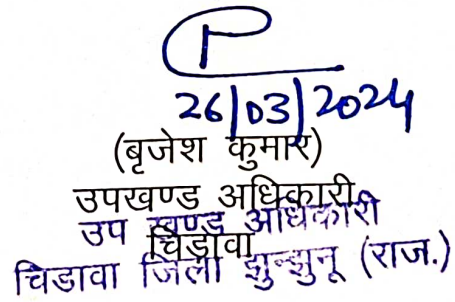 26/03/2024
(बृजेश कुमार)
उपखण्ड अधिकारी
उप खण्ड अधिकारी
चिडावा
चिडावा जिला झुन्झुनू (राज.)